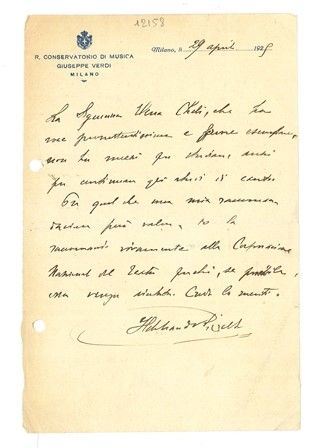 12158
R. CONSERVATORIO DI MUSICA
GIUSEPPE VERDI
MILANO
Milano, li 29 april 1925
La Signorina Vera che ha
voce e
non ha mezzi per studiare, anzi
per continuare gli studi di canto.
Per quel che una mia
può valere, io la
raccomando vivamente alla Corporazione
Nazionale del Teatro perchè, se possibile,
essa venga aiutata. Credo lo meriti.
Ildebrando Pizzetti